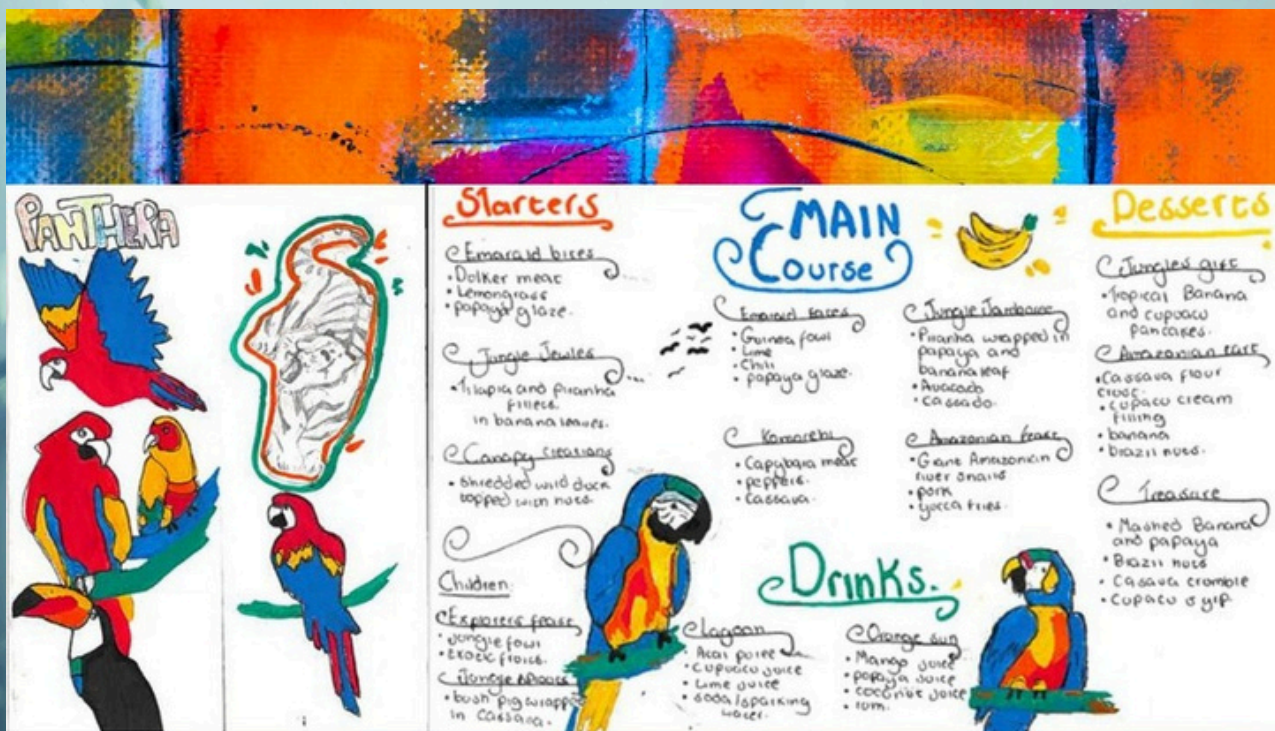 PANTHERA
Starters
Emarald bites
• Dolker meat
• Lemongrass
• papaya glaze.
Jungle Jewles
• Tilapia and piranha
fillets
in banana leaves.
Canopy creations
• Shredded wild duck
topped with nuts.
Children
Explorers feast
• jungle fowl
• Exotic fruits.
Jungle
• bush pig wrapped
in cassava.
MAIN
Course
Emarald
• Guinea fowl
• Lime
• Chili
• papaya glaze.
Jungle Jamboree
• Piranha wrapped in
papaya and
banana leaf
• Avacado
• cassado.
• Capybara meat
• peppers.
• cassava.
Amazonian feast
• Giant Amazonian
river snails
• pork
• yucca fries.
Drinks.
Lagoon
• Acai puree
• Cupuacu juice
• Lime juice
• soda/sparking
water.
Orange sun
• Mango juice
• papaya juice
• coconut juice
• rum.
Desserts
Jungles gift
• Tropical Banana
and cupuacu
pancakes.
Amazonian tart
• Cassava flour
crust.
• cupacu cream
filling
• banana
• brazil nuts.
Treasure
• Mashed Banana
and papaya
• Brazil nuts
• Casava crumble
• Cupacu